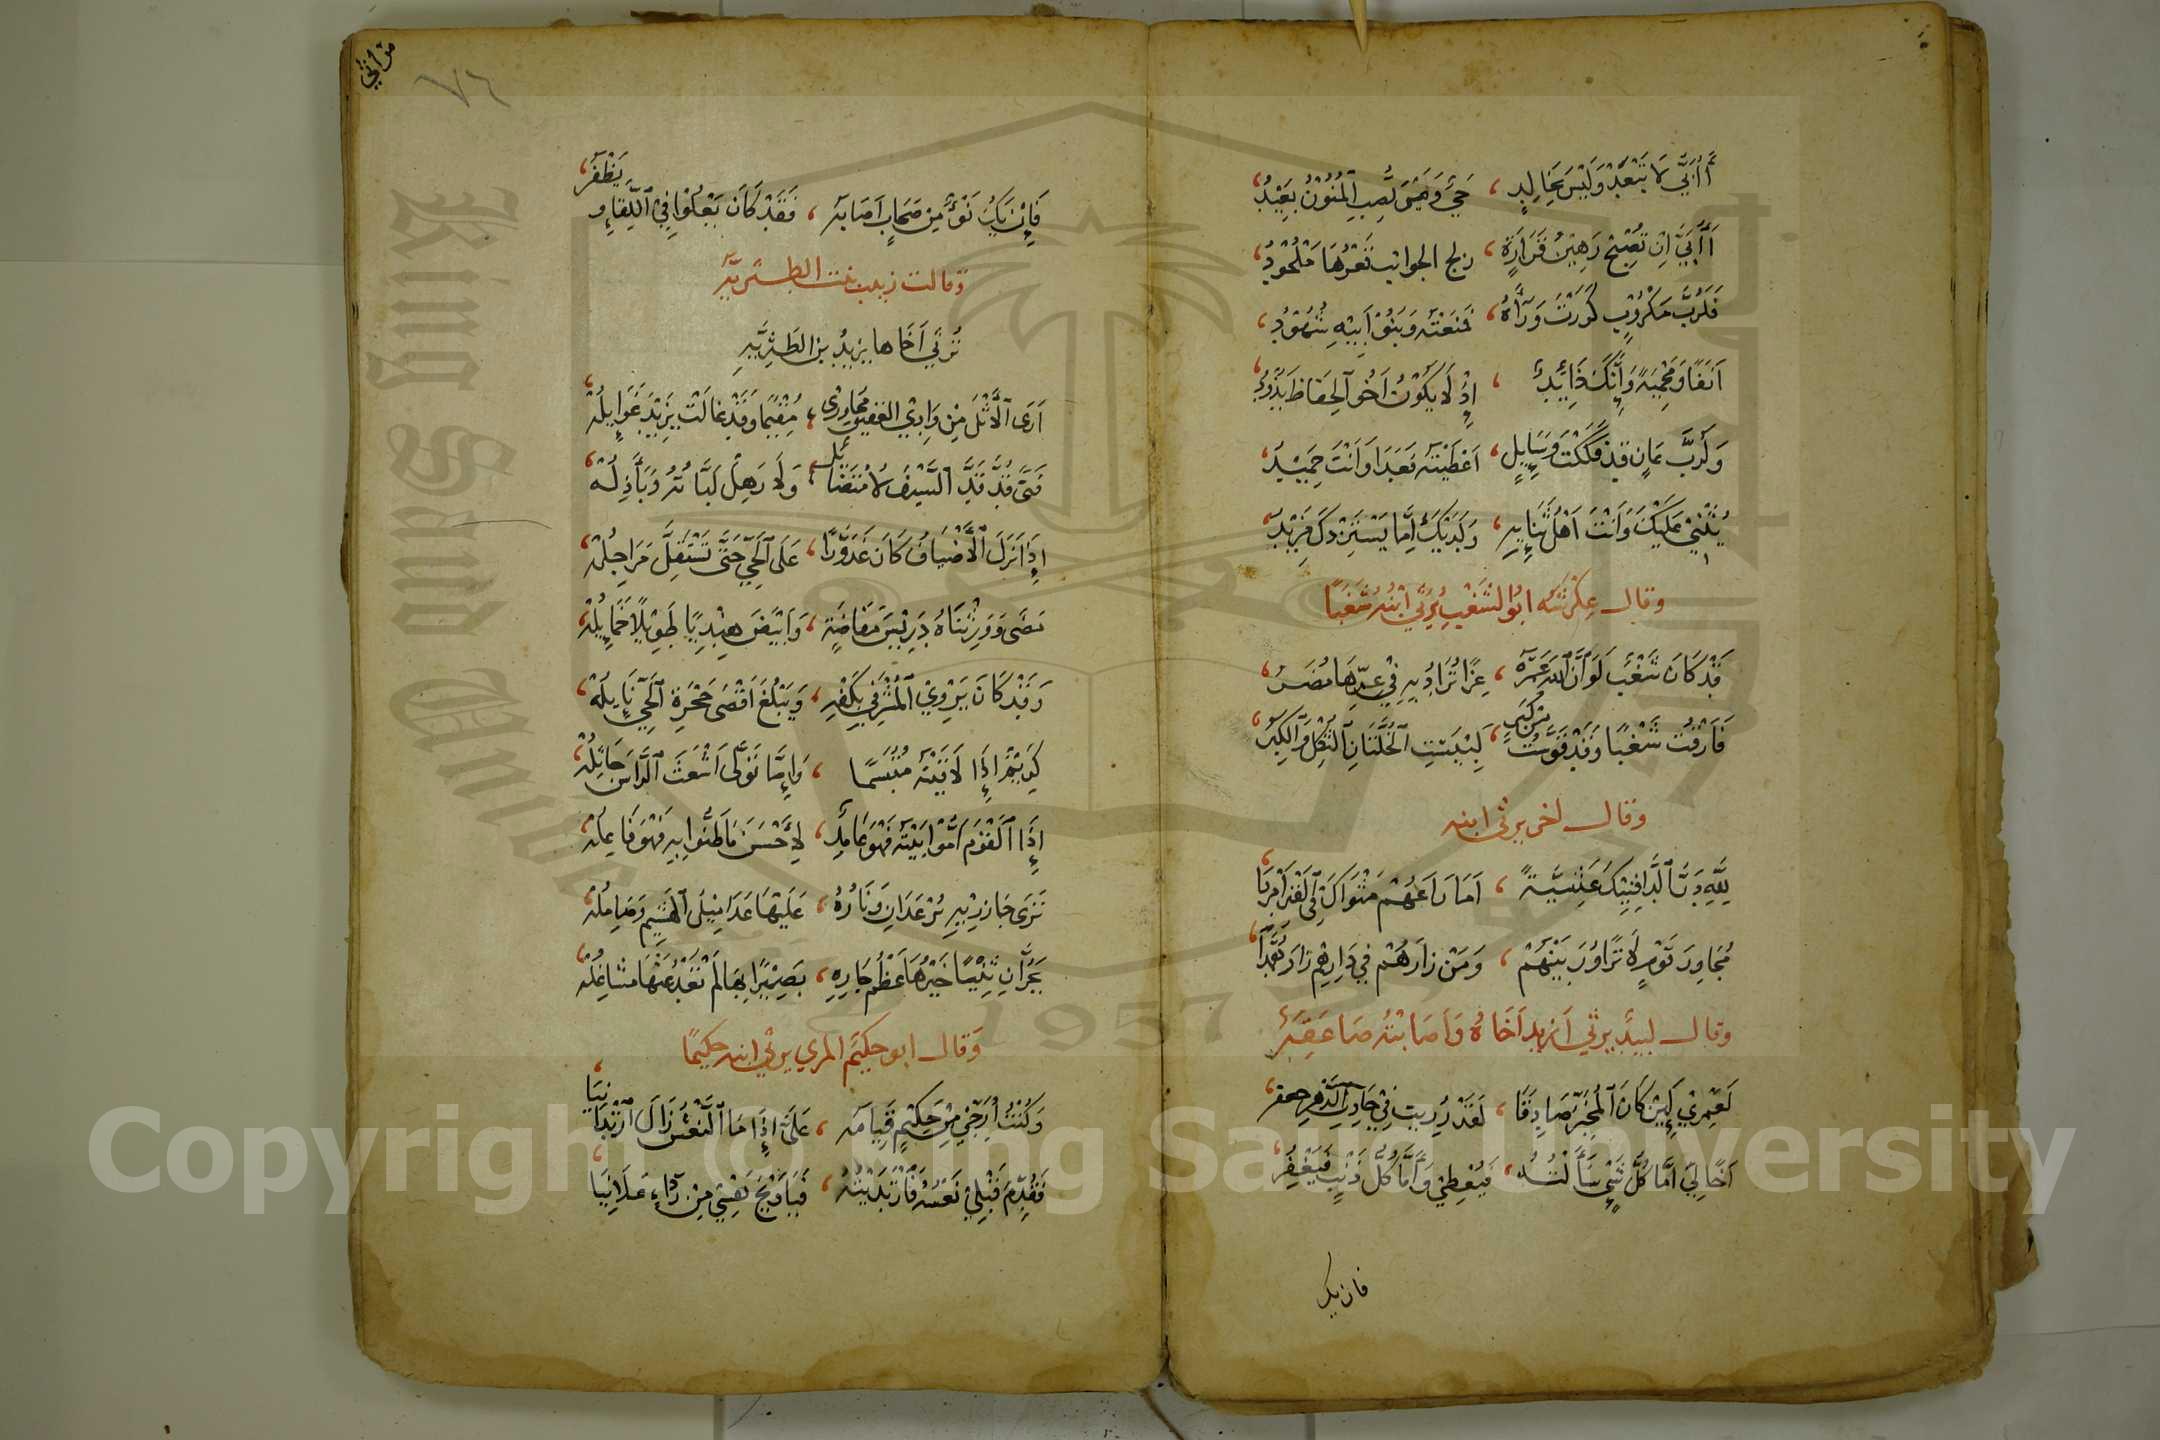 أَأُبَيُّ لَا تَبْعَدْ وَلَيْسَ بِخَالِدٍ ، حَيٌّ وَمَنْ تُصِبِ الْمَنُونُ بَعِيْدُ
أَأُبَيُّ اِنْ تُصْبِحْ رَهِيْنَ قَرَارَةٍ ، زلج الجوانب قَعْرُهَا مَلْحُوْدُ
فَلَرُبَّ مَكْرُوْبٍ كَرَرْتَ وَرَآءَهُ ، فَمَنَعْتَهُ وَبَنُوْ اَبِيْهِ شُهُوْدُ
اَنَفًا وَمَحْمِيَةً وَإِنَّكَ ذَائِدٌ ، إِذْ لَا يَكُوْنُ اَخُو الْحِفَاظِ يَذُوْدُ
وَلَرُبَّ عَانٍ قد فَكَكْتَ وَسَايِلٍ ، اَعْطَيْتَهُ فَغَدَا وَاَنْتَ حَمِيْدُ
يُثْنِيْ عَلَيْكَ وَاَنْتَ اَهْلُ ثَنَايِهِ ، وَلَدَيْكَ إِمَّا يَسْتَزِدْكَ مَزِيْدُ
وقال عِكْرِشَه ابُوْ الشَغْبِ يَرْثِي ابْنَهُ شَغْبًا
قَدْ كَانَ شَغْبٌ لَوَ اَنَّ اللَّهَ عَمَّرَهُ ، عِزًّا تُزَادُ بِهِ فِيْ عِزِّهَا مُضَرُ
فَارَقْتُ شَغْبًا وَقَدْ قَوَّسْتُ مِنْ كِبَرٍ ، لَبِئْسَتِ الْخَلَّتَانِ الثُّكْلُ وَالْكِبَرُ
وقال اخر يرثى ابنه
لِلَّهِ دَرُّ الدَّافِنِيْكَ عَشِيَّةً ، اَمَا رَاعَهُمْ مَثْوَاكَ فِي الْقَبْرِ اَمْرَدَا
مُجَاوِرَ قَوْمٍ لَا تَزَاوُرَ بَيْنَهُمْ ، وَمَنْ زَارَهُمْ فِي دَارِهِمْ زَارَ هُمَّدَا
وقال لبيدٌ يرثي اَرْبَد اَخَاهُ وَاَصَابَتْهُ صَاعِقَةٌ
لَعَمْرِيْ لَئِنْ كَانَ الْمُخَبِّرُ صَادِقًا ، لَقَدْ رُزِيت فِيْ حَادِثِ الدَّهْرِ جعفر
اَخًا لِيْ اَمَّا كُلَّ شَيْءٍ سَأَلْتُهُ ، فَيُعْطِيْ وَاَمَّا كُلَّ ذَنْبٍ فَيَغْفِرُ
فان يك
مراثي
٧٦
فَإِنْ يَكُ نَوْءٌ مِنْ سَحَابٍ اَصَابَهُ ، فَقَدْ كَانَ يَعْلُوْ فِي اللِّقَاءِ وَيَظْفَرُ
وقالت زينب بنت الطثرية
تَرْثي اَخَاها يزيدُ بن الطَثْرِيَّةِ
اَرَى الْاَثْلَ مِنْ وَادِي العَقِيْقِ مُجَاوِرِى ، مُقِيْمًا وَقَدْ غَالَتْ يَزِيْدَ غَوَايِلُهْ
فَتًى قُدَّ قَدَّ السَّيْفِ لَا مُتَضَائِلٌ ، وَلَا رَهِلٌ لَبَّاتُهُ وَبَأْدِلُهْ
اِذَا نَزَلَ الْاَضْيَافُ كَانَ عَذَوَّرًا ، عَلَى الْحَيِّ حَتَّى تَسْتَقِلَّ مَرَاجِلُهْ
مَضَى وَوَرِثْنَاهُ دَرِيْسَ مَفَاضَةٍ ، وَاَبْيَضَ هِنْدِيًّا طَوِيْلًا حَمَايِلُهْ
وَقَدْ كَانَ يُرْوِيْ الْمَشْرَفِيَّ بِكَفِّهِ ، وَيَبْلُغُ اَقْصَى حَجْرَةِ الْحَيِّ نَايِلُهْ
كَرِيْمٌ إِذَا لَاقَيْتَهُ مُتَبَسِّمًا ، وَاِمَّا تَوَلَّى اَشْعَثُ الرَّاسِ جَافِلُهْ
إِذَا الْقَوْمُ اَمُّوْا بَيْتَهُ فَهْوَ عَامِدٌ ، لِاَحْسَنِ مَا ظَنُّوا بِهِ فَهْوَ فَاعِلُهْ
تَرَى جَازِرَيْهِ يُرْعَدَانِ وَنَارُهُ ، عَلَيْهَا عَدَامِيْلُ الْهَشِيْمِ وَصَامِلُهْ
يَجُرَّانِ ثِنْيًا خَيْرُهَا عَظْمُ جَارِهِ ، بَصِيْرًا بِهَا لَمْ تَعْدُ عَنْهَا مَشَاغِلُهْ
وَقال ابو حكيم المري يرثي ابنه حكيمًا
وَكُنْتُ اُرَجِّيْ مِنْ حَكِيْمٍ قِيَامَهُ ، عَلَيَّ إِذَا مَا النَّعْشُ زَالَ ارْتَدَانِيَا
فَقُدِّمَ قَبْلِيْ نَعْشُهُ فَارْتَدَيْتُهُ ، فَيَا وَيْحَ نَفْسِيْ مِنْ رِدَآءٍ عَلَانِيَا
King Saud University
1957
Copyright © King Saud University